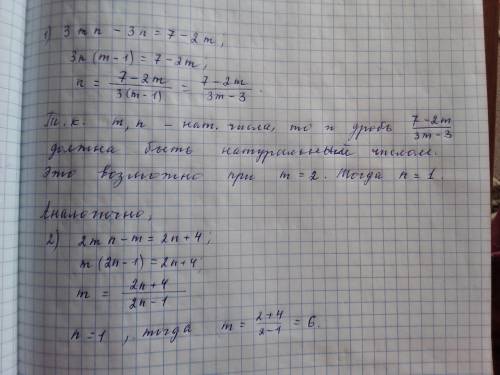 1) 3mn - 3n = 7 - 2m,
3n(m-1) = 7-2m,
n = \frac{7-2m}{3(m-1)} = \frac{7-2m}{3m-3}.
Т.к. m, n - нат. числа, то и дробь \frac{7-2m}{3m-3}
должна быть натуральный числом.
Это возможно при m=2. Тогда n=1.
Аналогично,
2) 2mn - m = 2n+4;
m(2n-1) = 2n+4,
m = \frac{2n+4}{2n-1}
n=1, тогда m = \frac{2+4}{2-1} = 6.